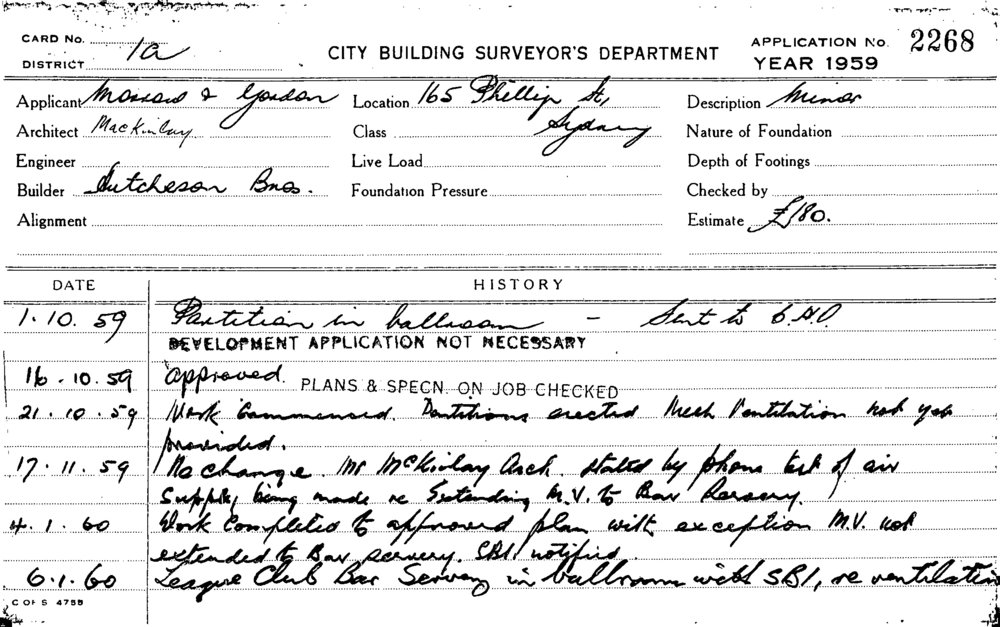 CARD No.
DISTRICT 1a
CITY BUILDING SURVEYOR'S DEPARTMENT
APPLICATION No. 2268
YEAR 1959
Applicant Morrow & Gordon
Location 165 Phillip St,
Sydney
Description Minor
Architect MacKinlay
Class
Nature of Foundation
Engineer
Live Load
Depth of Footings
Builder Hutcheson Bros.
Foundation Pressure
Checked by
Alignment
Estimate £180.
DATE HISTORY
1.10.59 Partition in ballroom - Sent to C.H.O.
DEVELOPMENT APPLICATION NOT NECESSARY
16.10.59 Approved. PLANS & SPECN. ON JOB CHECKED
21.10.59 Work Commenced. Partitions erected Mech Ventilation not yet
provided.
17.11.59 No change. Mr McKinlay Arch. stated by phone test of air
supply being made re Extending M.V. to Bar Servery.
4.1.60 Work Completed to approved plan with exception M.V. not
extended to Bar servery. SBI notified.
6.1.60 League Club Bar Servery in ballroom with SBI, re ventilation
C OF S 4755